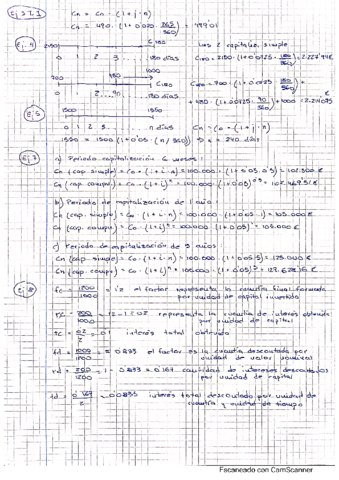 Ej 3 y 1
Cn = Co · (1 + i · n)
Cn = 490 · (1 + 0'020 · 365/360) = 499'01
Ej. 4
2150
C180
Ley capitaliz. simple
0 1 2 3 ... 180 días
C180 = 2150 · (1 + 0'0725 · 180/360) = 2.227'94 €
700 480 1000
C180
C180 = 700 · (1 + 0'0725 · 180/360) +
0 1 2 .. 90 .. 180 días
+ 480 · (1 + 0'0725 · 90/360) + 1000 =
Ej. 5
1500 1550
0 1 2 3 ... n días
Cn = Co · (1 + i · n)
1550 = 1500 (1 + 0'05 · (n / 360)) → n = 240 días
Ej. 7
a) Periodo capitalización 6 meses:
Cn (cap. simple) = Co · (1 + i · n) = 100.000 · (1 + 0'05 · 0'5) = 102.500 €
Cn (cap. compu.) = Co · (1 + i)ⁿ = 100.000 · (1 + 0'05)^0'5 = 102.469'51 €
b) Periodo de capitalización de 1 año:
Cn (cap. simple) = Co · (1 + i · n) = 100.000 · (1 + 0'05 · 1) = 105.000 €
Cn (cap. compu.) = Co · (1 + i)ⁿ = 100.000 (1 + 0'05)¹ = 105.000 €
c) Periodo de capitalización de 5 años:
Cn (cap. simple) = Co · (1 + i · n) = 100.000 · (1 + 0'05 · 5) = 125.000 €
Cn (cap. compu.) = Co · (1 + i)ⁿ = 100.000 · (1 + 0'05)⁵ = 127.628'16 €
Ej. 8
fc = 1200/1000 = 1'2 el factor representa la cuantía final formada
por unidad de capital invertido
rc = 200/1000 = 1'2 - 1 = 0'2 representa la cuantía de interés obtenida
por unidad de capital
tc = 0'2/2 = 0'1 interés total obtenido
fd = 1000/1200 = 0'833 el factor es la cuantía descontada por
unidad de valor nominal
rd = 200/1200 = 1 - 0'833 = 0'167 cantidad de intereses descontados
por unidad de capital
td = 0'167/2 = 0'0835 interés total descontado por unidad de
cuantía y unidad de tiempo
Escaneado con CamScanner